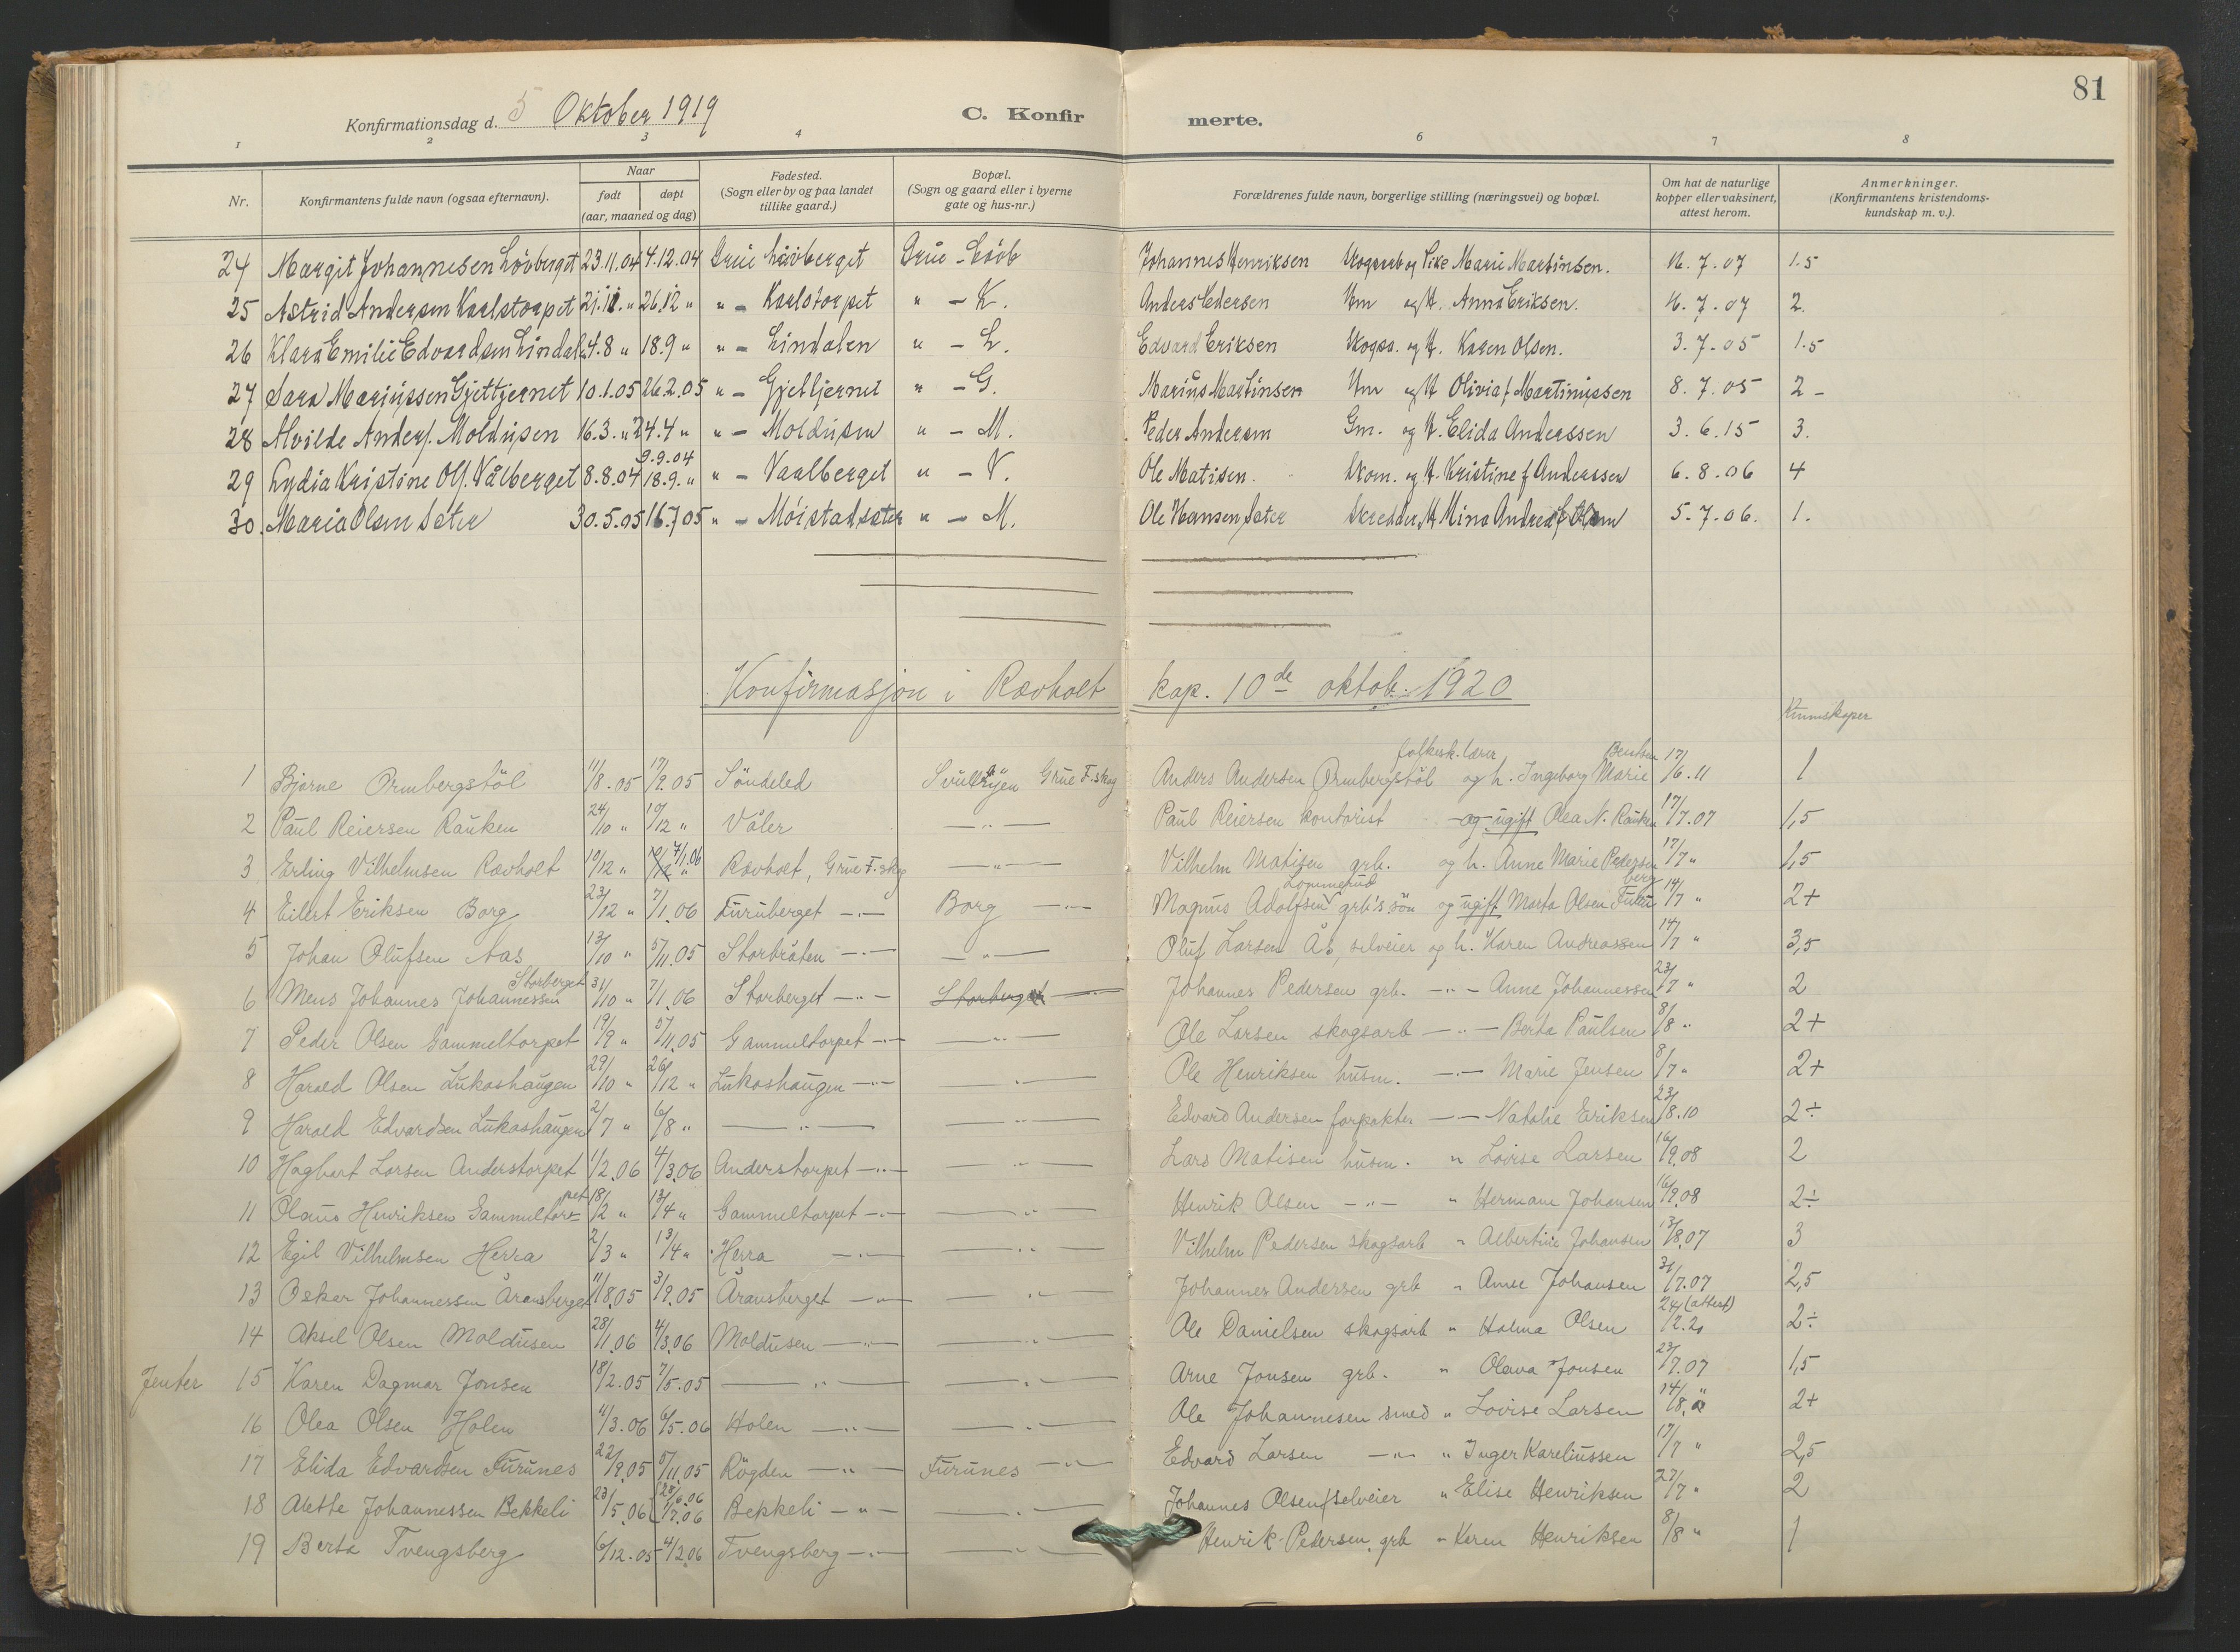 81
Konfirmationsdag d. 5 Oktober 1919 C. Konfir merte.
1 2 3 4 6 7 8
Nr. Konfirmantens fulde navn (ogsaa efternavn). Naar født døpt (aar, maaned og dag) Fødested. (Sogn eller by og paa landet tillike gaard.) Bopæl. (Sogn og gaard eller i byerne gate og hus-nr.) Forældrenes fulde navn, borgerlige stilling (næringsvei) og bopæl. Om hat de naturlige kopper eller vaksinert, attest herom. Anmerkninger. (Konfirmantens kristendomskundskap m. v.).
24 Margit Johannesen Lövberget 23.11.04 4.12.04 Grue Lövberget Grue - Lövb Johannes Henriksen Skogsarb og Marie Martinsen. 7.07 1.5
25 Astrid Andersen Karlstorpet 21.11. " 26.12 " " - Karlstorpet " - K. Anders Edersen Hm og H. Anna Eriksen. 7.07 2.
26 Klara Emilie Edvardsen Lindalen 4.8 " 18.9 " " - Lindalen " - L. Edvard Eriksen Skogsa. og H. Karen Olsen. 3.7.05 1.5
27 Sara Mariussen Gjettjernet 10.1.05 26.2.05 " - Gjettjernet " - G. Marius Martinsen Hm og H Olivia f Martinussen 8.7.05 2 -
28 Alvilde Anders. Moldusen 16.3. " 24.4 " " - Moldusen " - M. Peder Andersen Gm. og H. Elida Anderssen 3.6.15 3.
29 Lydia Kristine Ols. Vålberget 8.8.04 9.9.04 18.9. " " - Vaalberget " - V. Ole Matisen. Skom. og H. Kristine f Anderssen 6.8.06 4
30. Maria Olsen Sæter 30.5.05 16.7.05 " - Möistadsæter " - M. Ole Hansen Sæter Skredder H Mina Andrea f Olsen 5.7.06. 1.
Konfirmasjon i Rovholt kap. 10de oktob. 1920
Kunnskaper
1 Bjarne Ormbergstöl 11/8.05 17/9.05 Söndeled Svullrya Grue F.skog Anders Andersen Ormbergstöl folkesk. lærer og h. Ingeborg Marie Bentsen 17/6.11 1
2 Paul Reiersen Rauken 24/10 " 10/12 " Våler — " — Paul Reiersen kontorist og ugift Olea N. Rauken 17/7.07 1,5
3 Erling Vilhelmsen Rovholt 10/12 " 7/1.06 Rovholt, Grue F.skog — " — Vilhelm Matisen grb. og h. Anne Marie Pedersen 17/7 " 1,5
4 Eilert Eriksen Borg 23/12 " 7/1.06 Furuberget — " — Borg — " — Magnus Adolfsen Lommerud grb's sön og ugift Marta Olsen Furuberg 14/7 " 2+
5 Johan Olufsen Aas 13/10 " 5/11.05 Storbråten — " — — " — Oluf Larsen Ås, selveier og h. Karen Andreassen 14/7 " 3,5
6 Mens Johannes Johannessen Storberget 31/10 " 7/1.06 Storberget — " — Storberget — " — Johannes Pedersen grb. — " — Anne Johannessen 23/7 " 2
7 Peder Olsen Gammeltorpet 19/9 " 5/11.05 Gammeltorpet — " — — " — Ole Larsen skogsarb — " — Berta Paulsen 8/8 " 2+
8 Harald Olsen Lukashaugen 29/10 " 26/12 " Lukashaugen — " — — " — Ole Henriksen husm. — " — Marie Jensen 8/7 " 2+
9 Harald Edvardsen Lukashaugen 2/7 " 6/8 " — " — — " — Edvard Andersen forpakter — " — Natalie Eriksen 23/8.10 2÷
10 Hagbart Larsen Anderstorpet 1/2.06 4/3.06 Anderstorpet — " — — " — Lars Matisen husm. " Lovise Larsen 16/9.08 2
11 Olaus Henriksen Gammeltorpet 18/2 " 13/4 " Gammeltorpet — " — — " — Henrik Olsen — " — " Hermane Johansen 16/9.08 2÷
12 Egil Vilhelmsen Herra 2/3 " 13/4 " Herra — " — — " — Vilhelm Pedersen skogsarb " Albertine Johansen 13/8.07 3
13 Oskar Johannessen Åransberget 11/8.05 3/9.05 Åransberget — " — — " — Johannes Andersen grb " Anne Johansen 31/7.07 2,5
14 Aksel Olsen Moldusen 28/1.06 4/3.06 Moldusen — " — — " — Ole Danielsen skogsarb " Halma Olsen 24/2.20 (attest) 2÷
Jenter 15 Karen Dagmar Jonsen 18/2.05 7/5.05 — " — — " — Arne Jonsen grb. " Olava Jonsen 23/7.07 1,5
16 Olea Olsen Holen 4/3.06 6/5.06 Holen — " — — " — Ole Johannesen smed " Lovise Larsen 14/8. " 2+
17 Elida Edvardsen Furunes 22/9.05 5/11.05 Rögden — " — Furunes — " — Edvard Larsen — " — " Inger Kareliussen 17/7 " 2,5
18 Alette Johannessen Bekkeli 23/5.06 Bekkeli — " — — " — Johannes Olsen selveier " Elise Henriksen 27/7 " 2
19 Berta Tvengsberg 6/12.05 4/2.06 Tvengsberg — " — — " — Henrik Pedersen, grb " Karen Henriksen 8/8 " 1